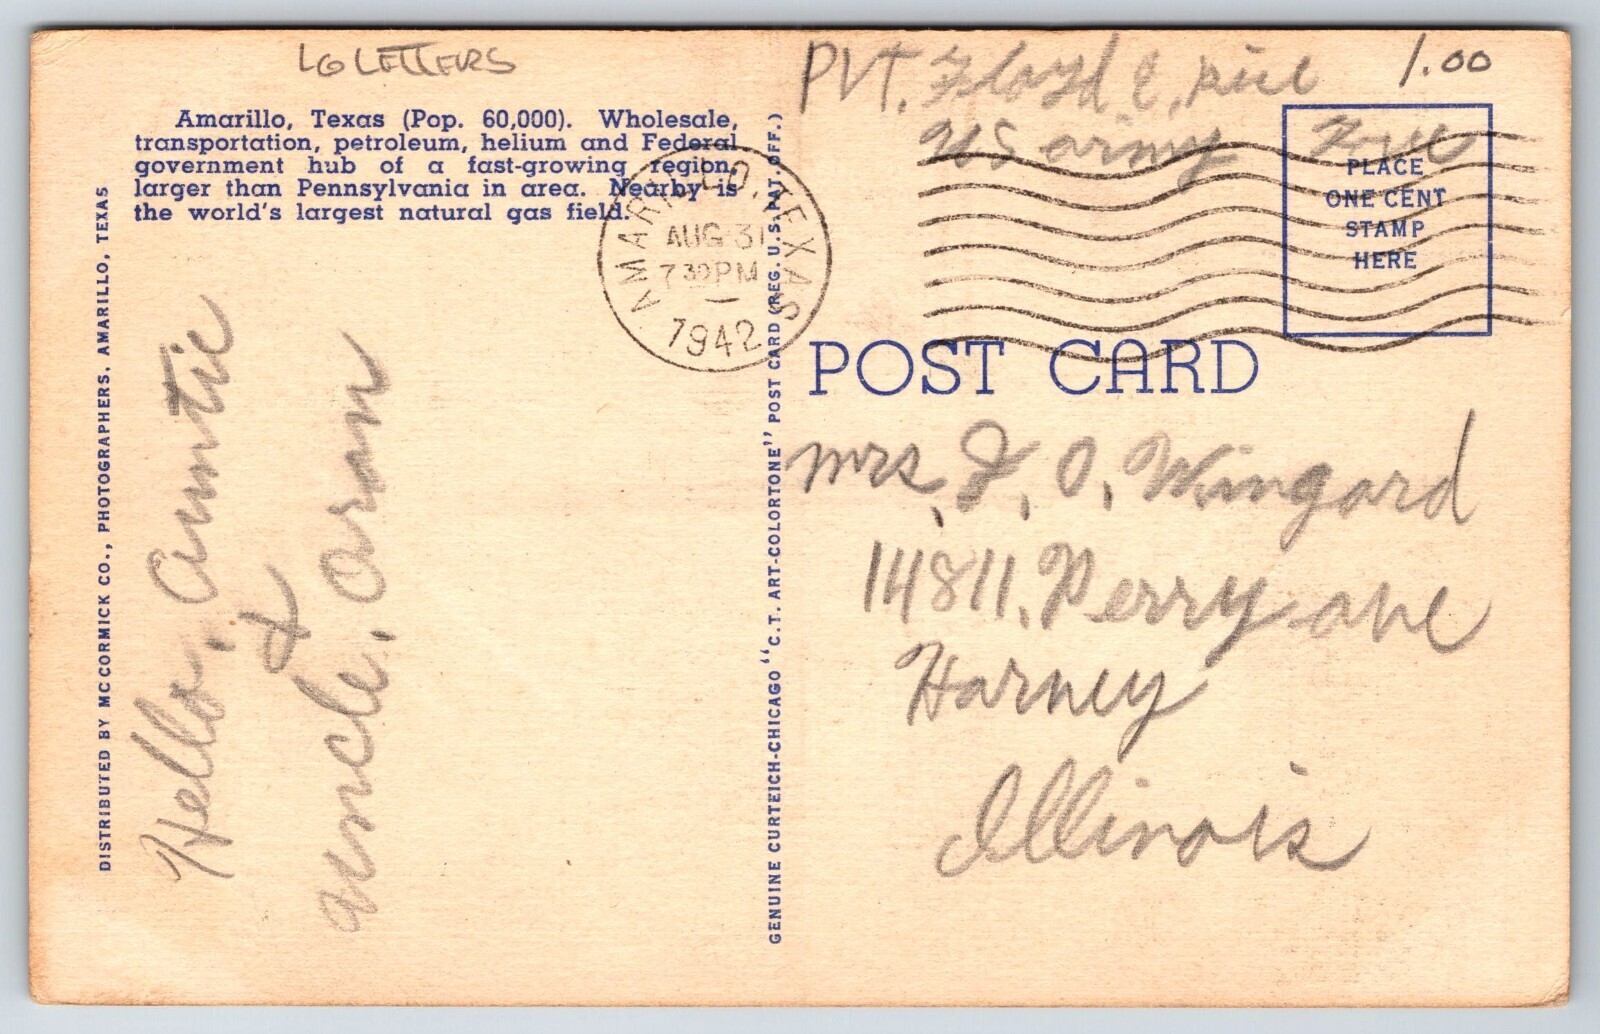 LG LETTERS
Amarillo, Texas (Pop. 60,000). Wholesale,
transportation, petroleum, helium and Federal
government hub of a fast-growing region,
larger than Pennsylvania in area. Nearby is
the world's largest natural gas field.
DISTRIBUTED BY MCCORMICK CO., PHOTOGRAPHERS, AMARILLO, TEXAS
Hello, Auntie
&
uncle, Oran
AMARILLO, TEXAS
AUG 31
7 30 PM
1942
GENUINE CURTEICH-CHICAGO "C.T. ART-COLORTONE" POST CARD (REG. U.S. PAT. OFF.)
PVT. Floyd E, rice
US army Free
1.00
PLACE
ONE CENT
STAMP
HERE
POST CARD
mrs, J, O, Wingard
14811, Perry ave
Harvey
Illinois